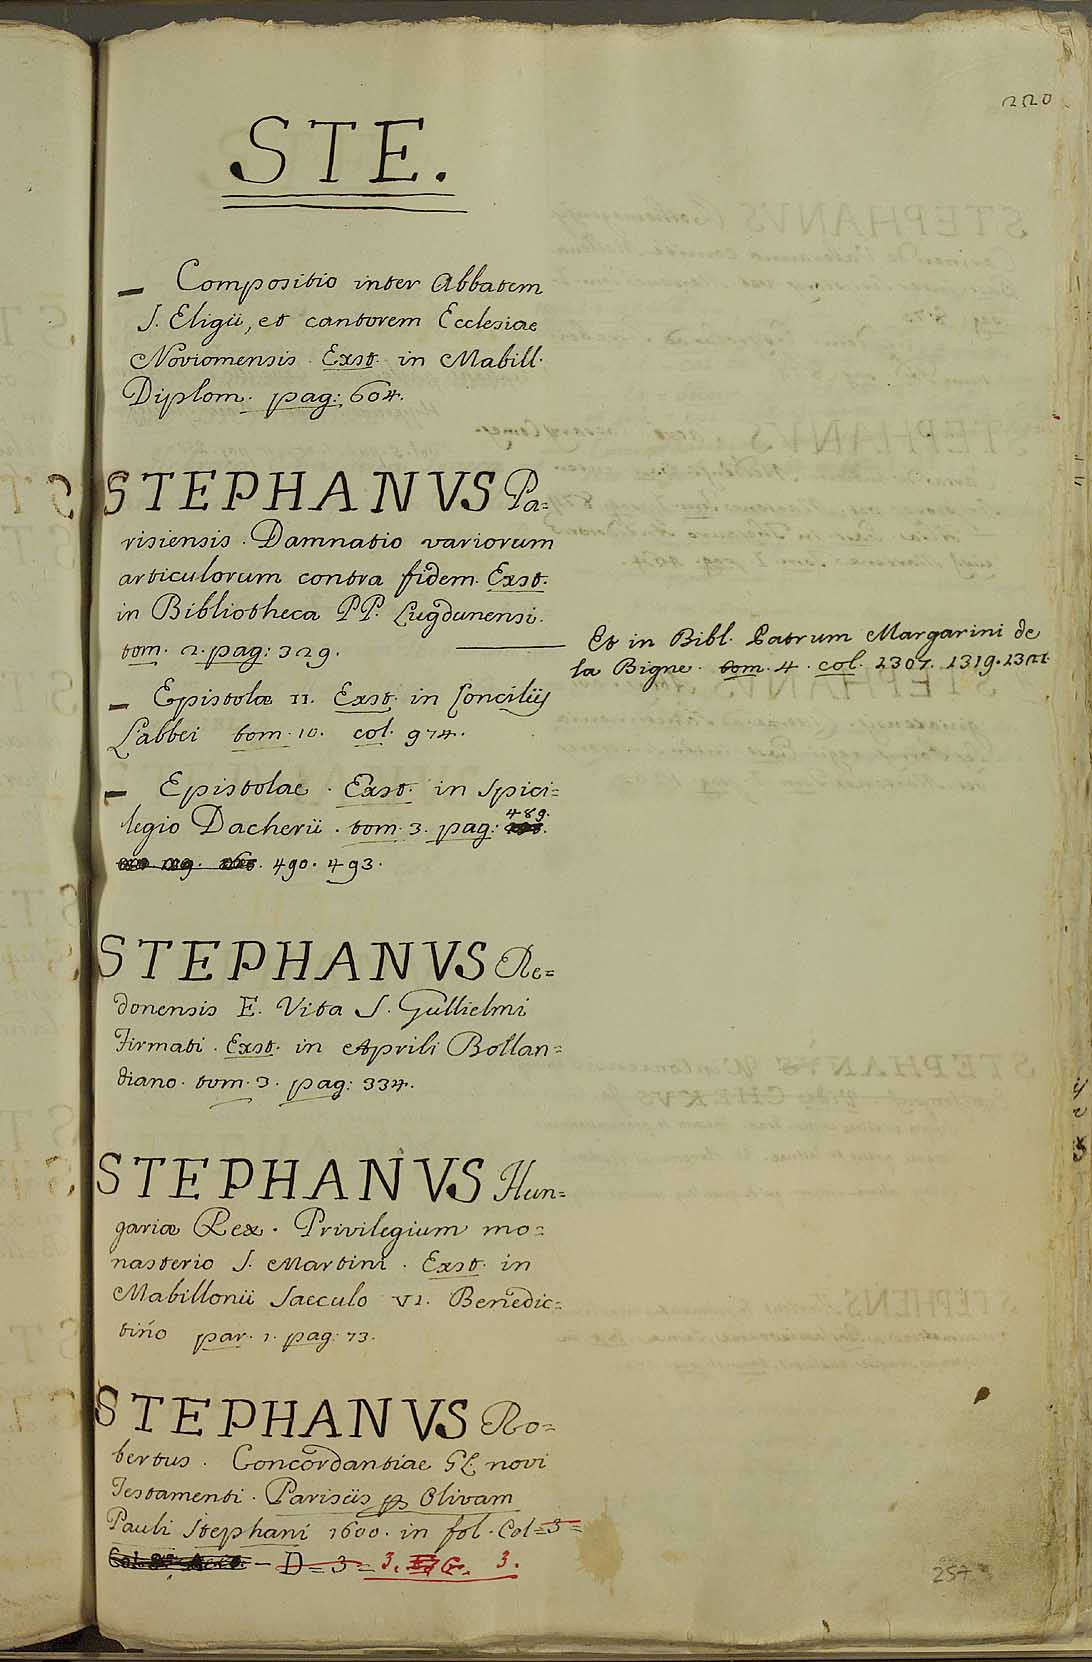 220
STE.
— Compositio inter Abbatem
S. Eligii, et cantorem Ecclesiae
Noviomensis. Exst. in Mabill.
Diplom. pag: 604.
STEPHANVS Pa=
risiensis. Damnatio variorum
articulorum contra fidem. Exst.
in Bibliotheca PP. Lugdunensi.
tom. 2. pag: 329.
Et in Bibl. Patrum Margarini de
la Bigne. tom. 4. col. 1307. 1319. 1321.
— Epistolæ II. Exst. in Conciliis
Labbei tom. 10. col. 974.
— Epistolae. Exst. in Spici=
legio Dacherii. tom. 3. pag: 489.
490. 493.
STEPHANVS Re=
donensis E. Vita S. Gullielmi
Firmati. Exst. in Aprili Bollan=
diano. tom. 3. pag: 334.
STEPHANVS Hun=
gariæ Rex. Privilegium mo=
nasterio S. Martini. Exst. in
Mabillonii Saeculo VI. Benedic=
tino par. 1. pag: 73.
STEPHANVS Ro=
bertus. Concordantiae GL. novi
Testamenti. Parisiis Olivam
Pauli Stephani 1600. in fol. Col=3=
— D=3= 3. G. 3.
257